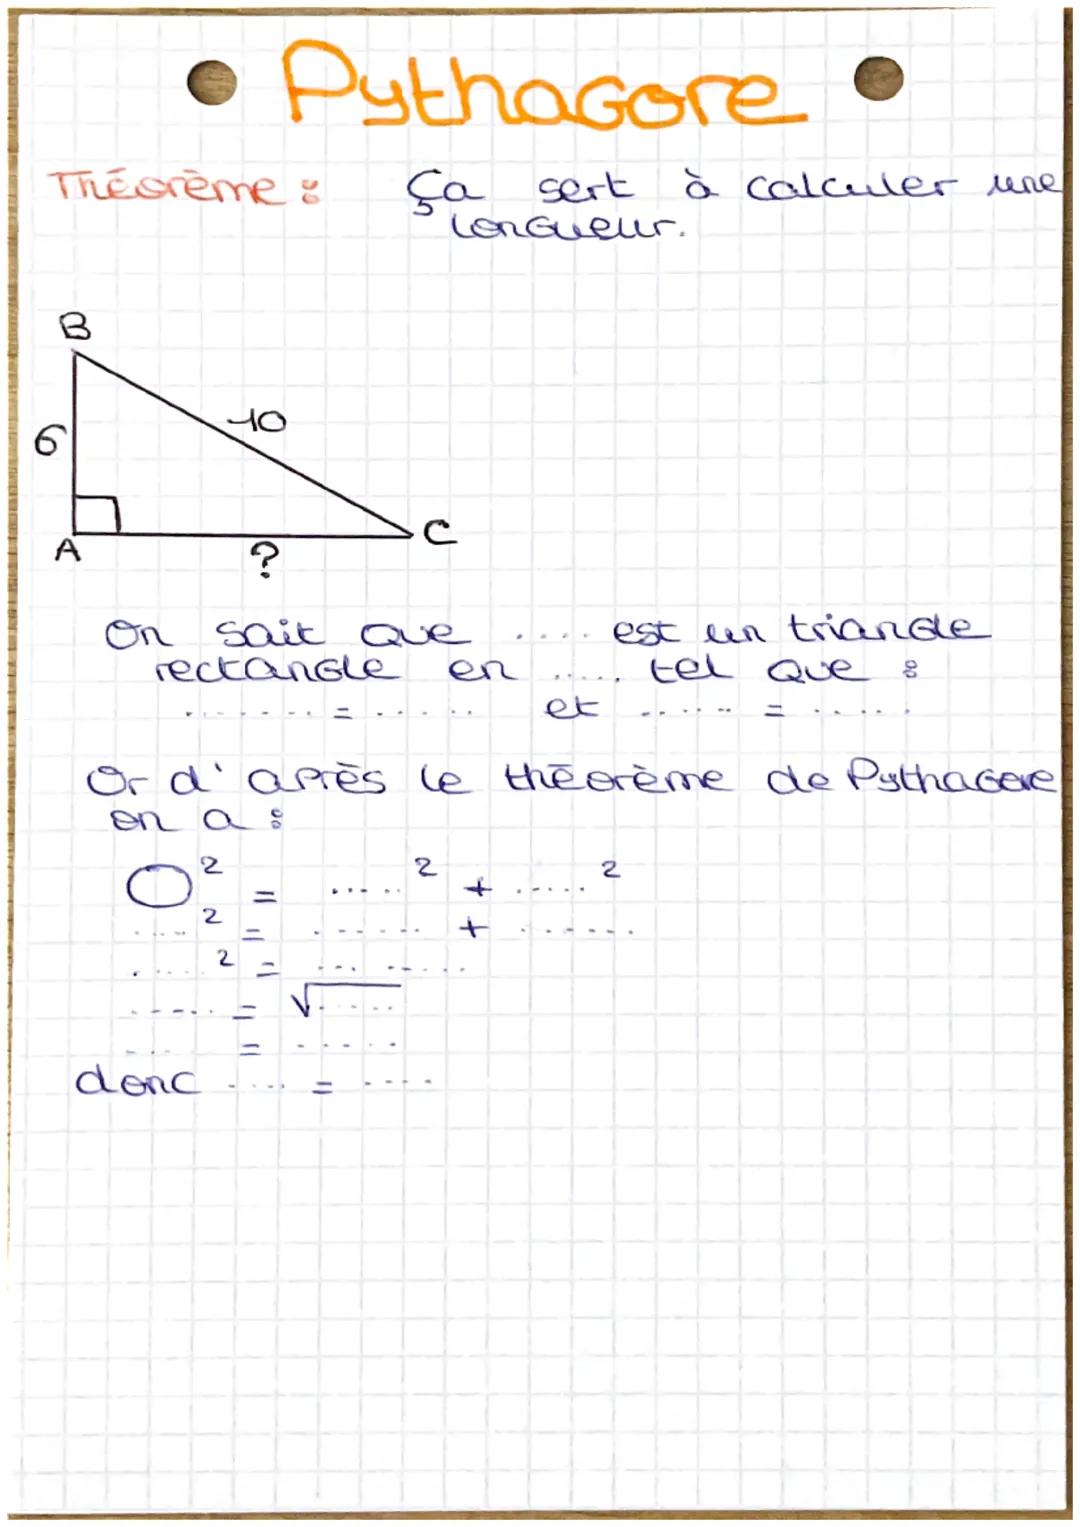 Pythagore
Théorème : Ça sert à calculer une
longueur.
B
10
6
A
?
C
On sait que .... est un triangle
rectangle en ..... tel que :
....... = ..... et ...... = .....
Or d'après le théorème de Pythagore
on a :
O² = .....² + .....²
....² = ...... + ......
.....² = ........
..... = √.....
.... = .....
donc .... = ....